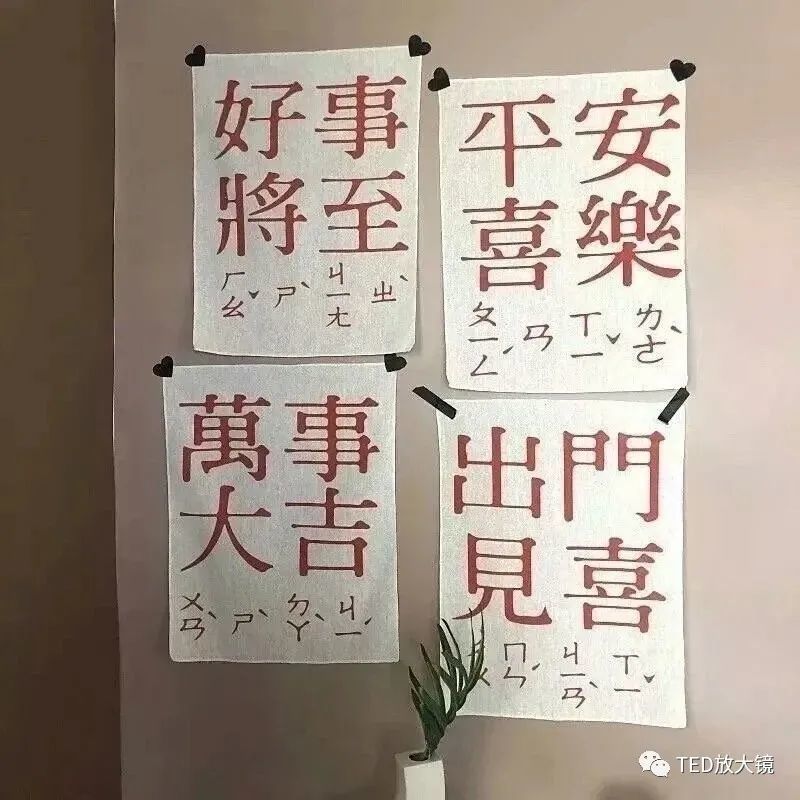 好事
將至
ㄏㄠˇ ㄕˋ ㄐㄧㄤ ㄓˋ
平安
喜樂
ㄆㄧㄥˊ ㄢ ㄒㄧˇ ㄌㄜˋ
萬事
大吉
ㄨㄢˋ ㄕˋ ㄉㄚˋ ㄐㄧˊ
出門
見喜
ㄇㄣˊ ㄐㄧㄢˋ ㄒㄧˇ
TED放大镜